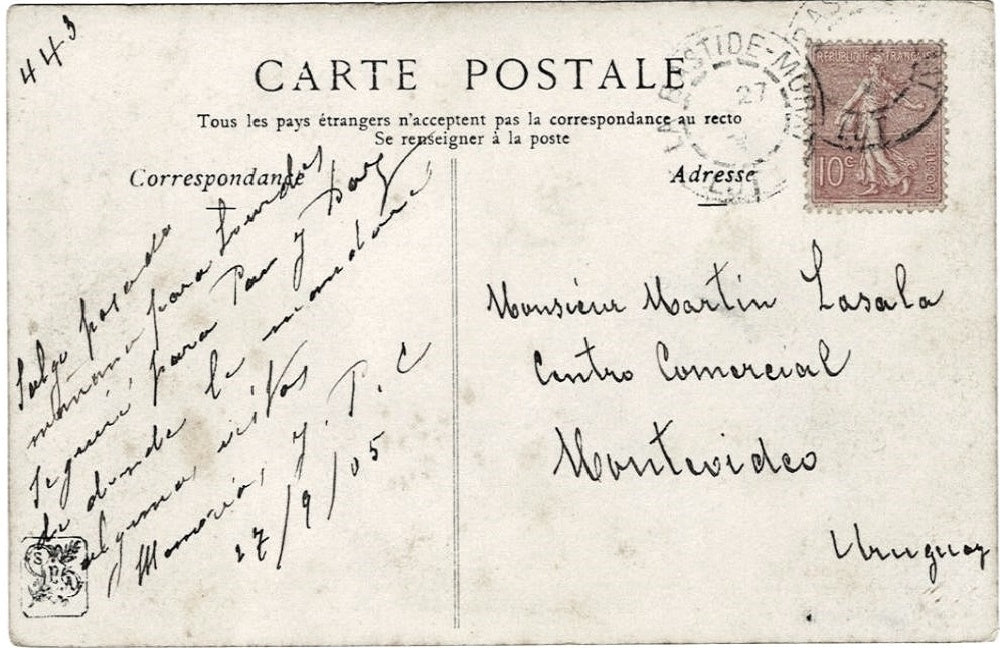 443
CARTE POSTALE
Tous les pays étrangers n'acceptent pas la correspondance au recto
Se renseigner à la poste
Correspondance
Adresse
Salgo pasado
mañana para Lourdes
Seguiré para Pau y
de donde le mandaré
algunas vistas
Memorias,
J. P. C
27/9/05
Monsieur Martin Lasala
Centro Comercial
Montevideo
Uruguay
LA BASTIDE-MURAT
27
LOT
REPUBLIQUE FRANÇAISE
10c
POSTES